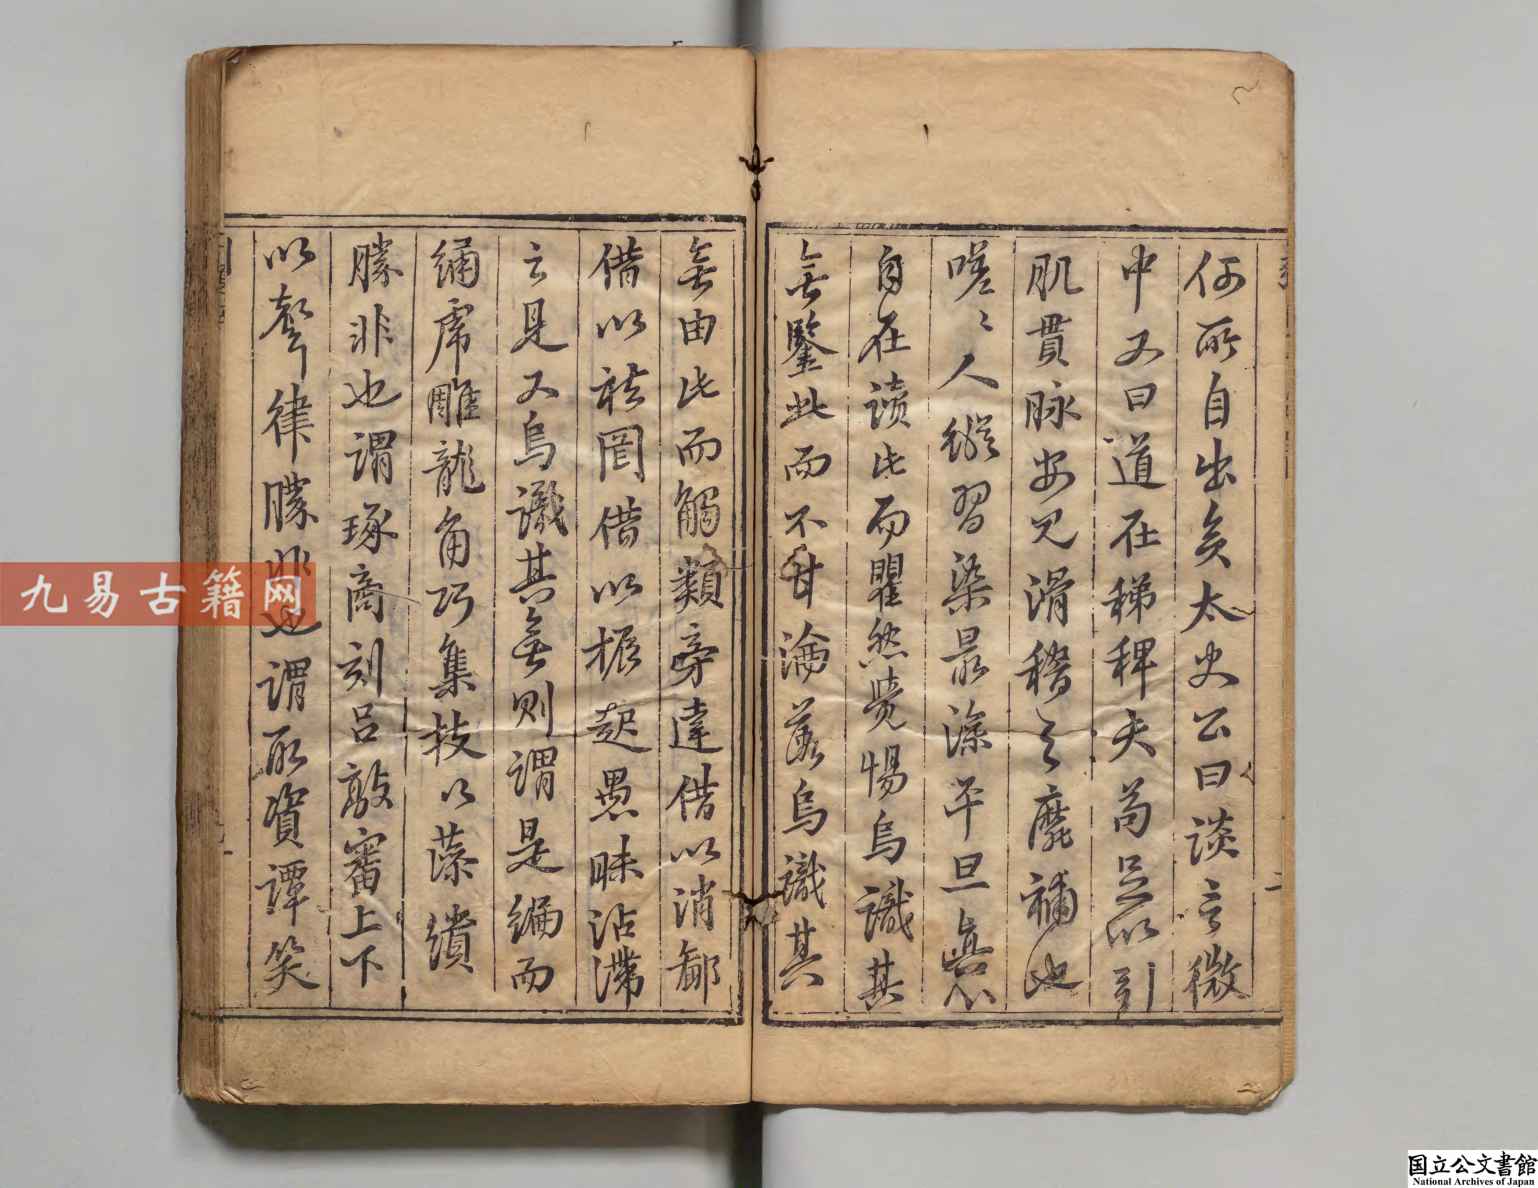 何所自出矣太史公曰談言微
中又曰道在稊稗夫苟足以引
肌貫脉安见滑稽之靡補也
嗟〻人縱習染最深平旦真心
自在讀此而瞿然覺惕烏識其
無鑒此而不甘淪落烏識其
無由此而觸類旁達借以消鄙
借以祛罔借以振起愚昧沾滯
云是又烏識其無則謂是編而
繡虎雕龍角巧集技以藻繢
勝非也謂琢商刻呂敲審上下
以聲律勝非也謂所資譚笑
九易古籍网
国立公文書館
National Archives of Japan